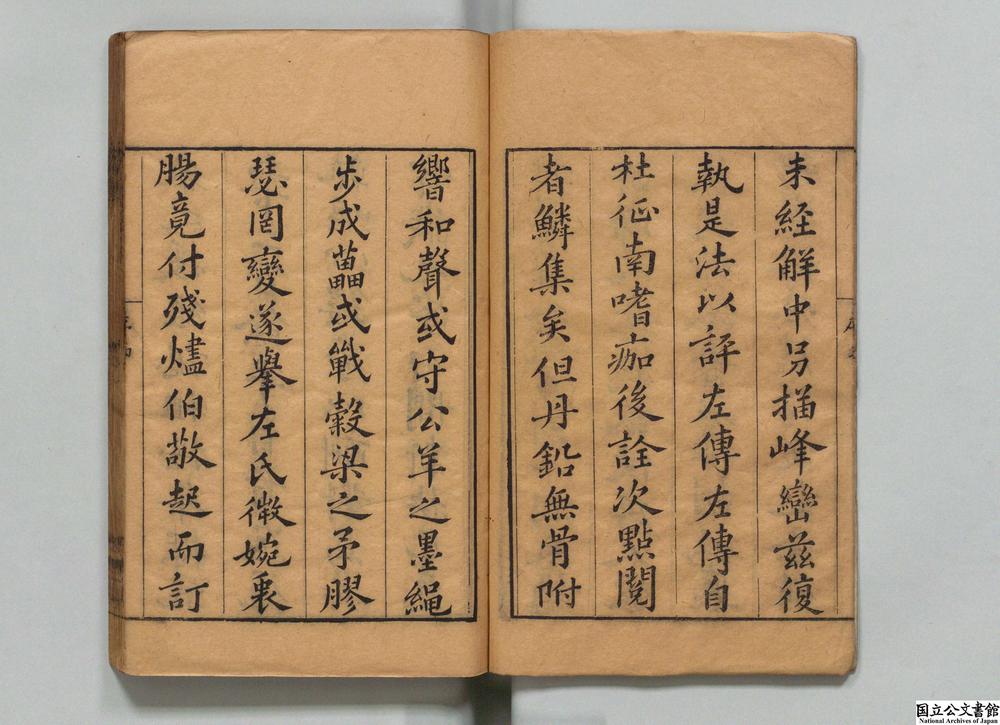 未經解中另描峰巒茲復
執是法以評左傳左傳自
杜征南嗜痂後詮次點閱
者鱗集矣但丹鉛無骨附
響和聲或守公羊之墨繩
步步成菑或戰穀梁之矛膠
瑟罔變遂擧左氏微婉衷
腸竟付殘燼伯敬起而訂
国立公文書館
National Archives of Japan